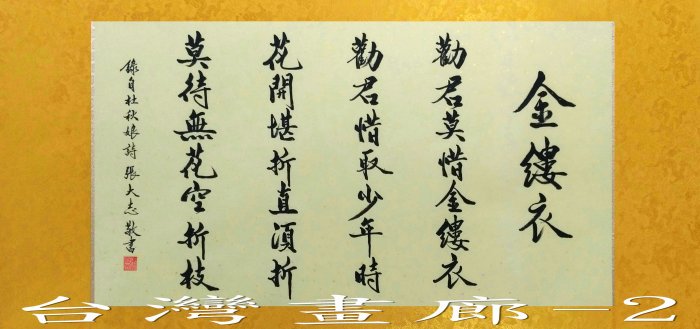 金縷衣
勸君莫惜金縷衣
勸君惜取少年時
花開堪折直須折
莫待無花空折枝
錄自杜秋娘詩 張大志敬書
台灣畫廊-2